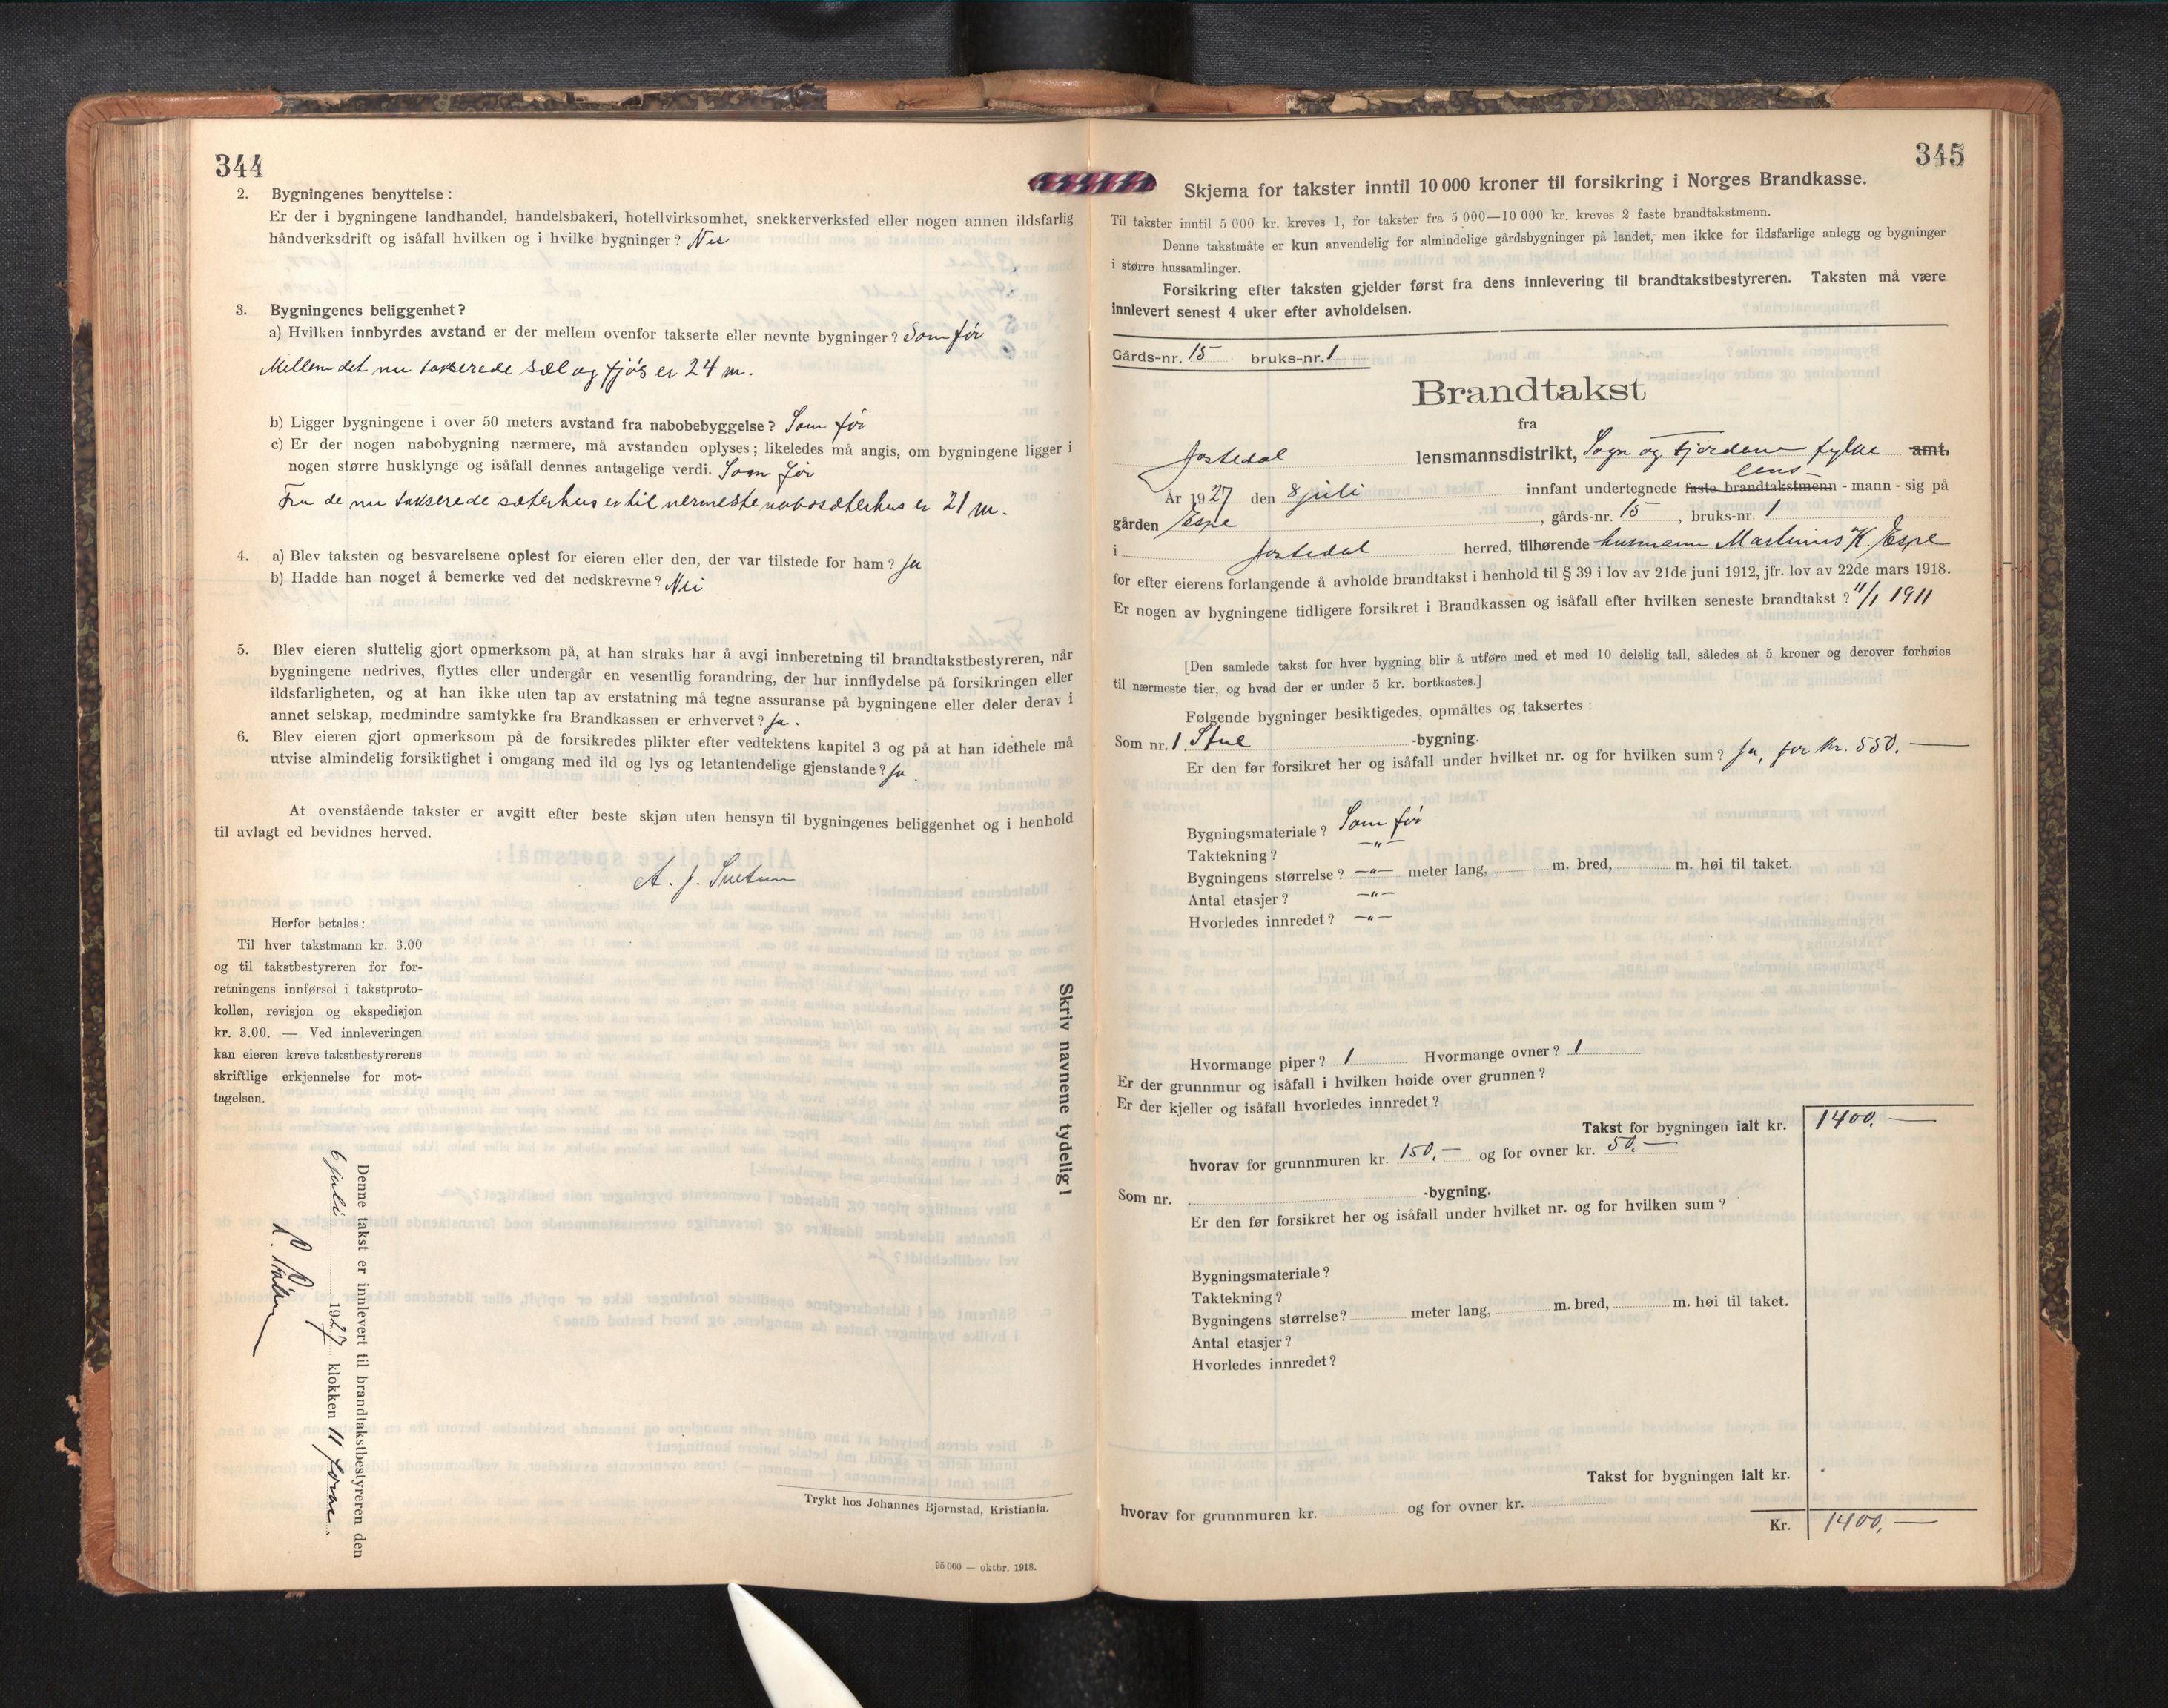 344
2. Bygningenes benyttelse:
Er der i bygningene landhandel, handelsbakeri, hotellvirksomhet, snekkerverksted eller nogen annen ildsfarlig
håndverksdrift og isåfall hvilken og i hvilke bygninger? Nei
3. Bygningenes beliggenhet?
a) Hvilken innbyrdes avstand er der mellem ovenfor takserte eller nevnte bygninger? Som før
Mellem det nu takserede sæl og fjøs er 24 m.
b) Ligger bygningene i over 50 meters avstand fra nabobebyggelse? Som før
c) Er der nogen nabobygning nærmere, må avstanden oplyses; likeledes må angis, om bygningene ligger i
nogen større husklynge og isåfall dennes antagelige verdi. Som før
Fra de nu takserede sæterhus er til nærmeste nabosæterhus er 21 m.
4. a) Blev taksten og besvarelsene oplest for eieren eller den, der var tilstede for ham? Ja
b) Hadde han noget å bemerke ved det nedskrevne? Nei
5. Blev eieren sluttelig gjort opmerksom på, at han straks har å avgi innberetning til brandtakstbestyreren, når
bygningene nedrives, flyttes eller undergår en vesentlig forandring, der har innflydelse på forsikringen eller
ildsfarligheten, og at han ikke uten tap av erstatning må tegne assuranse på bygningene eller deler derav i
annet selskap, medmindre samtykke fra Brandkassen er erhvervet? Ja.
6. Blev eieren gjort opmerksom på de forsikredes plikter efter vedtektens kapitel 3 og på at han idethele må
utvise almindelig forsiktighet i omgang med ild og lys og letantendelige gjenstande? Ja.
At ovenstående takster er avgitt efter beste skjøn uten hensyn til bygningenes beliggenhet og i henhold
til avlagt ed bevidnes herved.
A. J. Snetun
Herfor betales:
Til hver takstmann kr. 3.00
og til takstbestyreren for for-
retningens innførsel i takstproto-
kollen, revisjon og ekspedisjon
kr. 3.00. — Ved innleveringen
kan eieren kreve takstbestyrerens
skriftlige erkjennelse for mot-
tagelsen.
Skriv navnene tydelig!
Denne takst er innlevert til brandtakstbestyreren den
juli 1927 klokken 11 form.
Trykt hos Johannes Bjørnstad, Kristiania.
95 000 — oktbr. 1918.
345
Skjema for takster inntil 10 000 kroner til forsikring i Norges Brandkasse.
Til takster inntil 5 000 kr. kreves 1, for takster fra 5 000—10 000 kr. kreves 2 faste brandtakstmenn.
Denne takstmåte er kun anvendelig for almindelige gårdsbygninger på landet, men ikke for ildsfarlige anlegg og bygninger
i større hussamlinger.
Forsikring efter taksten gjelder først fra dens innlevering til brandtakstbestyreren. Taksten må være
innlevert senest 4 uker efter avholdelsen.
Gårds-nr. 15 bruks-nr. 1
Brandtakst
fra
Jostedal lensmannsdistrikt, Sogn og Fjordene fylke amt.
lens
År 1927 den 8 juli innfant undertegnede faste brandtakstmenn - mann - sig på
gården Espe, gårds-nr. 15, bruks-nr. 1
i Jostedal herred, tilhørende husmann Martinus K. Espe
for efter eierens forlangende å avholde brandtakst i henhold til § 39 i lov av 21de juni 1912, jfr. lov av 22de mars 1918.
Er nogen av bygningene tidligere forsikret i Brandkassen og isåfall efter hvilken seneste brandtakst? 11/1 1911
[Den samlede takst for hver bygning blir å utføre med et med 10 delelig tall, således at 5 kroner og derover forhøies
til nærmeste tier, og hvad der er under 5 kr. bortkastes.]
Følgende bygninger besiktigedes, opmåltes og taksertes:
Som nr. 1 Stue -bygning.
Er den før forsikret her og isåfall under hvilket nr. og for hvilken sum? Ja, for kr. 550.—
Bygningsmateriale? Som før
Taktekning? —"—
Bygningens størrelse? —"— meter lang, m. bred, m. høi til taket.
Antal etasjer? —"—
Hvorledes innredet? —"—
Hvormange piper? 1 Hvormange ovner? 1
Er der grunnmur og isåfall i hvilken høide over grunnen?
Er der kjeller og isåfall hvorledes innredet?
Takst for bygningen ialt kr. 1400.—
hvorav for grunnmuren kr. 150.— og for ovner kr. 50.—
Som nr. -bygning.
Er den før forsikret her og isåfall under hvilket nr. og for hvilken sum?
Bygningsmateriale?
Taktekning?
Bygningens størrelse? meter lang, m. bred, m. høi til taket.
Antal etasjer?
Hvorledes innredet?
Takst for bygningen ialt kr.
hvorav for grunnmuren kr. og for ovner kr.
Kr. 1400,—